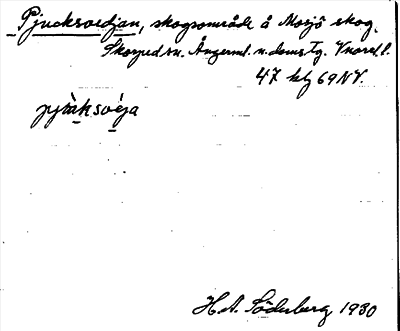 Pjucksvedjan, skogsområde å Mosjö skog,
Skorped sn. Ångerml. n. doms. tg. Vnorrl. l.
47 kbl 69 NV.
pjʉ̀ksvɛ́ja
H. A. Söderberg 1930